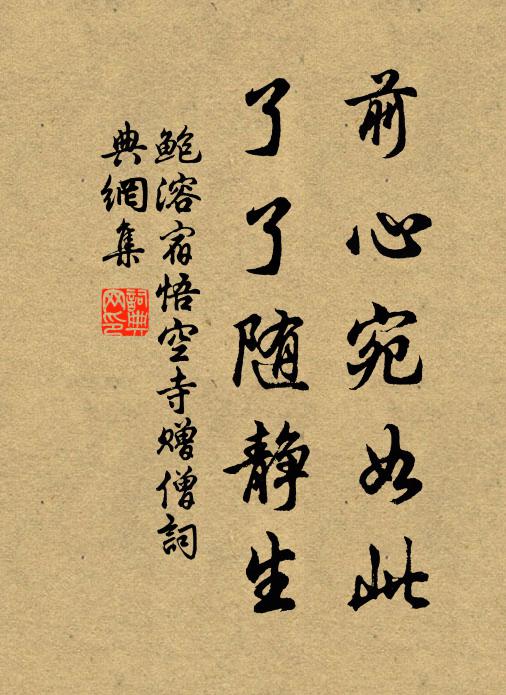 前心宛如此
了了随静生
鲍溶宿悟空寺赠僧詞
典網集
詞典
网印